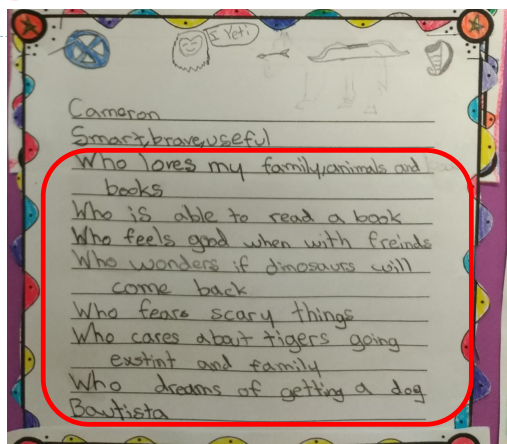 I Yeti
Cameron
Smart,brave,useful
Who loves my family,animals and
books
Who is able to read a book
Who feels good when with freinds
Who wonders if dinosaurs will
come back
Who fears scary things
Who cares about tigers going
exstint and family
Who dreams of getting a dog
Bautista